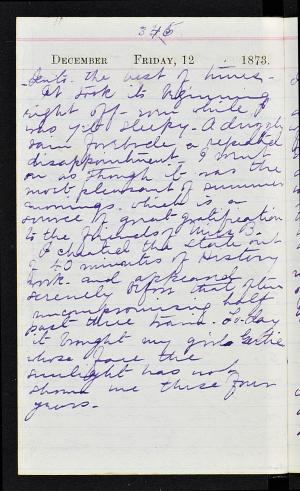 375
DECEMBER FRIDAY, 12 1873.
-dents. the best of times.-
It took its beginning
right off- soon while I
was yet sleepy.- A dingy
rain forebode a repeated
disappointment- I went
on as though it was the
most pleasant of summer
mornings. which is a
source of great gratification
to the friends of Miss B.
I cheated the State out
of 40 minutes of History
work. and appeared
serenely before that
uncompromising half
past three train. To-day
it brought my girl
whose face the
sunlight has not
shown me these four
years.-